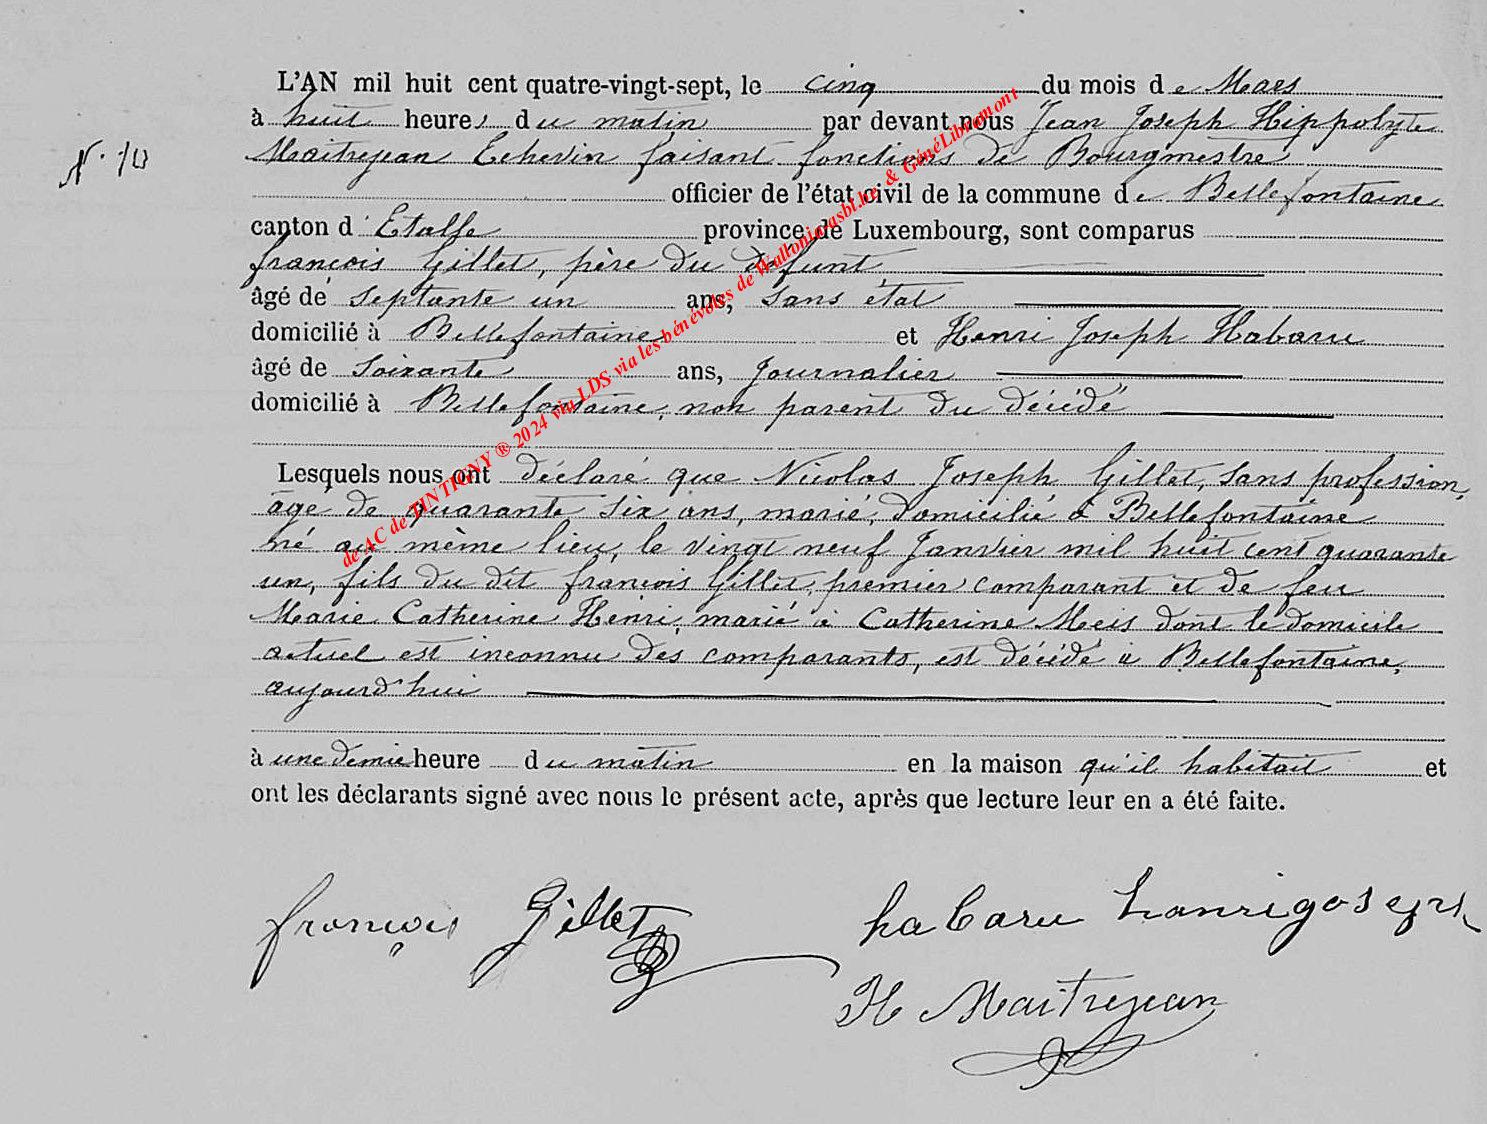 L'AN mil huit cent quatre-vingt-sept, le cinq du mois de Mars
à huit heures du matin par devant nous Jean Joseph Hippolyte
N. 10
Maitrejean Echevin faisant fonctions de Bourgmestre
officier de l'état civil de la commune de Bellefontaine
canton d'Etalle province de Luxembourg, sont comparus
françois Gillet, père du défunt,
âgé de septante un ans, sans état
domicilié à Bellefontaine et Henri Joseph Habaru
âgé de soixante ans, journalier
domicilié à Bellefontaine, non parent du décédé
Lesquels nous ont déclaré que Nicolas Joseph Gillet, sans profession,
âgé de quarante six ans, marié, domicilié à Bellefontaine
né au même lieu, le vingt neuf Janvier mil huit cent quarante
un, fils du dit françois Gillet, premier comparant et de feu
Marie Catherine Henri, marié à Catherine Meis dont le domicile
actuel est inconnu des comparants, est décédé à Bellefontaine,
aujourd'hui
à une demie heure du matin en la maison qu'il habitait et
ont les déclarants signé avec nous le présent acte, après que lecture leur en a été faite.
françois Gillet habaru
H Maitrejean
de AC de TINTIGNY ® 2024 via LDS via les bénévoles de Wallonia-asbl.be & GénéLibramont